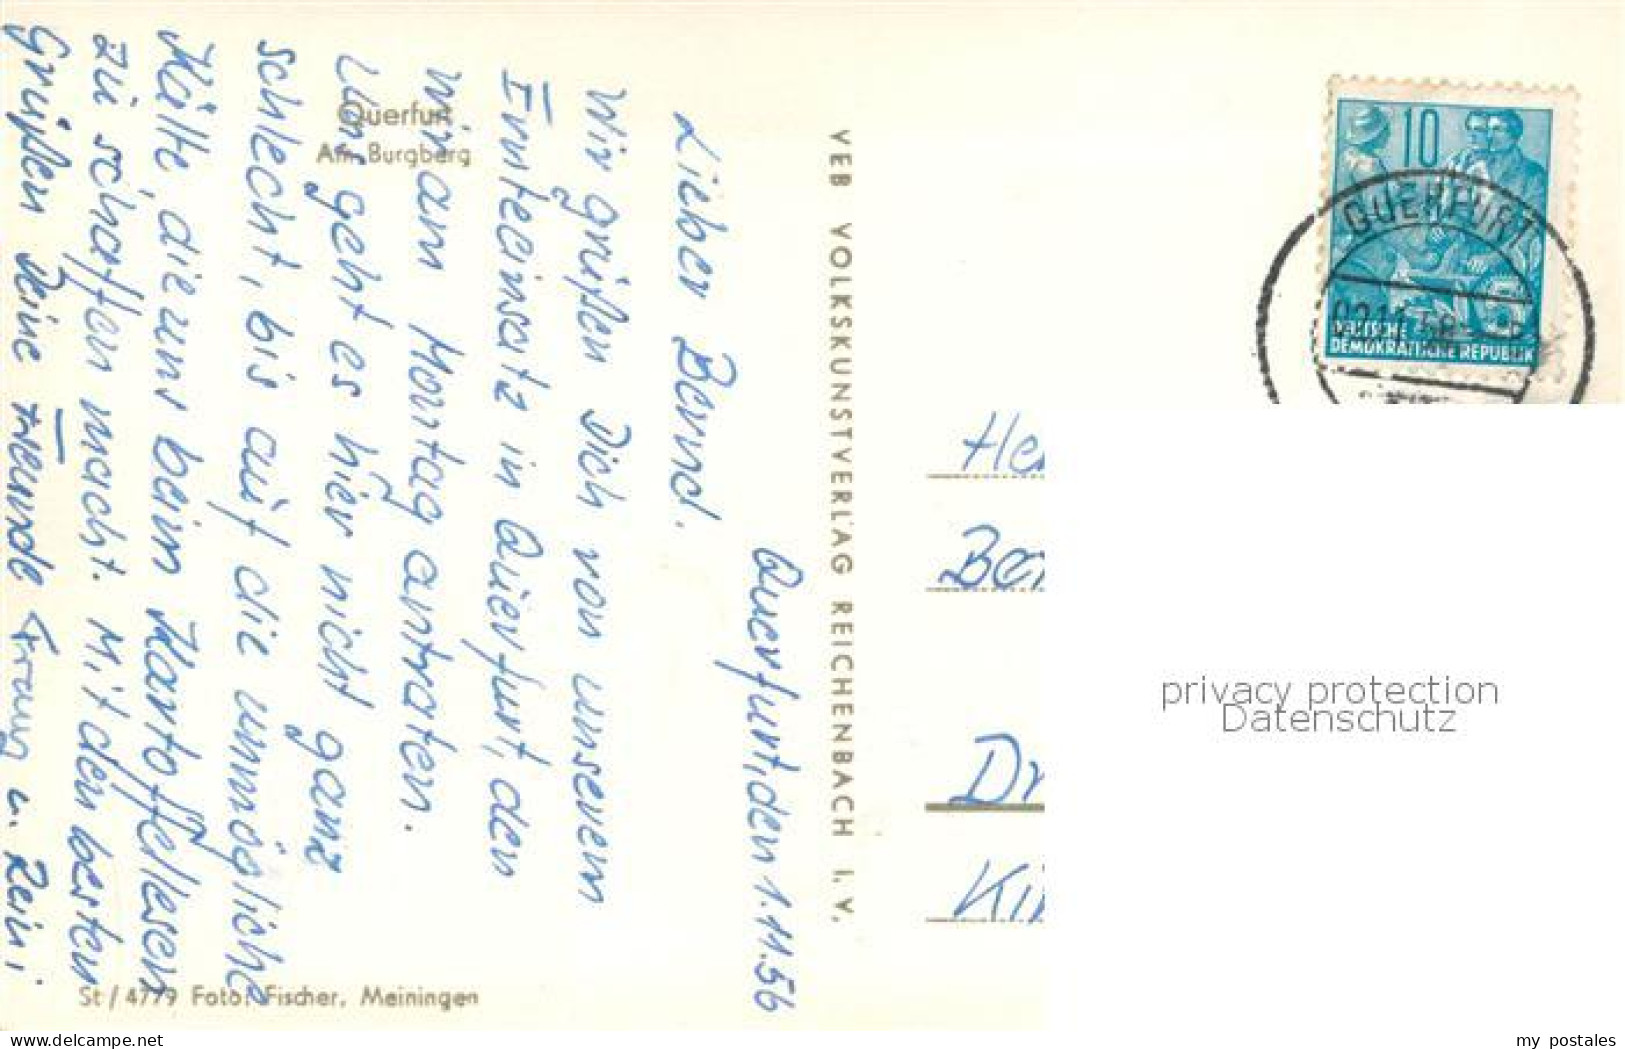 Querfurt
Am Burgberg
Querfurt, den 1.11.56
Lieber Bernd.
Wir grüßen Dich von unserem
Ernteeinsatz in Querfurt, den
wir am Montag antraten.
Uns geht es hier nicht ganz
schlecht, bis auf die unmögliche
Kälte, die uns beim Kartoffellesen
zu schaffen macht. Mit den besten
Grüßen Deine Freunde u. Reini
St / 4779 Foto: Fischer, Meiningen
VEB VOLKSKUNSTVERLAG REICHENBACH I. V.
10
DEUTSCHE
DEMOKRATISCHE REPUBLIK
QUERFURT
He
Be
Dr
Ki
privacy protection
Datenschutz
www.delcampe.net
my_postales